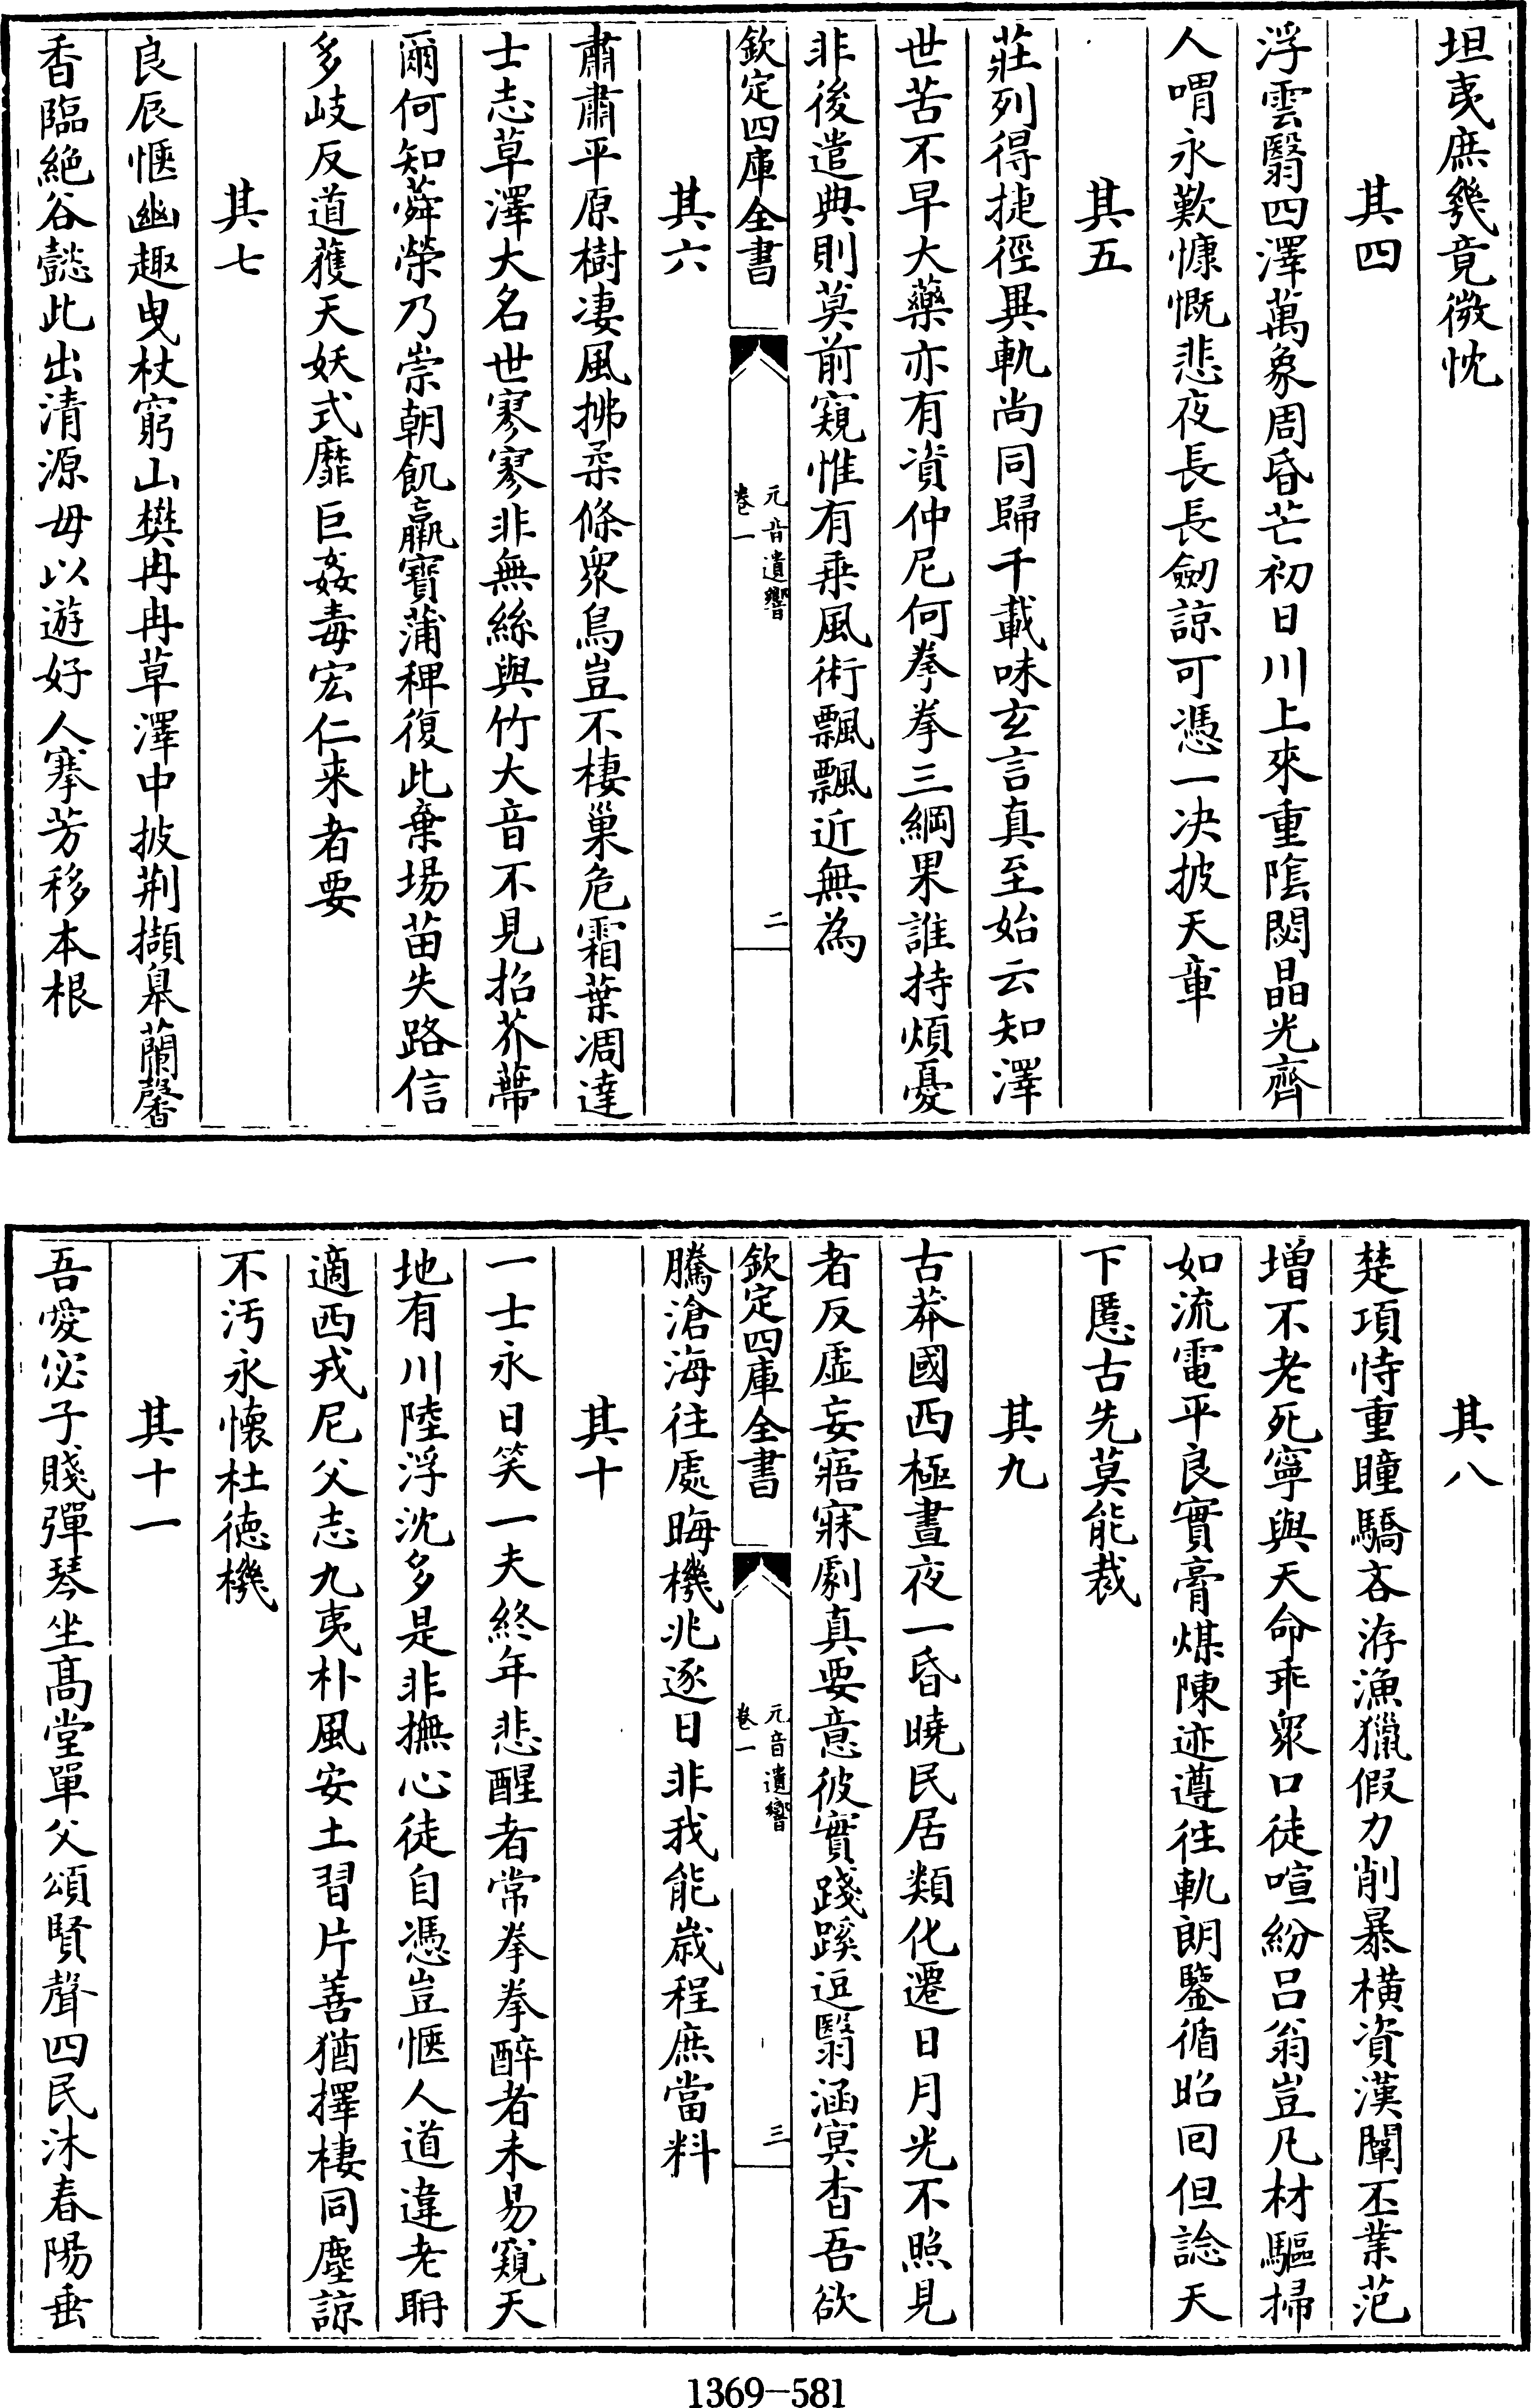 坦夷庶幾竟微忱
其四
浮雲翳四澤萬象周昏芒初日川上來重陰閟晶光齊
人喟永歎慷慨悲夜長長劒諒可憑一决披天章
其五
莊列得捷徑異軌尚同歸千載味玄言真至始云知澤
世苦不早大藥亦有資仲尼何拳拳三綱果誰持煩憂
非後遣典則莫前窺惟有乗風術飄飄近無為
欽定四庫全書
元音遺響
卷一
二
其六
肅肅平原樹凄風拂柔條衆鳥豈不棲巢危霜葉凋達
士志草澤大名世寥寥非無絲與竹大音不見招芥蔕
爾何知蕣榮乃崇朝飢羸寳蒲稗復此棄場苗失路信
多岐反道獲天妖式靡巨姦毒宏仁来者要
其七
良辰愜幽趣曳杖窮山樊冉冉草澤中披荆擷臯蘭馨
香臨絶谷懿此出清源毋以遊好人搴芳移本根
其八
楚項恃重瞳驕吝洊漁獵假力削暴横資漢闡丕業范
增不老死寧與天命乖衆口徒喧紛吕翁豈凡材驅掃
如流電平良實膏煤陳迹遵往軌朗鑒循昭回但諗天
下慝古先莫能裁
其九
古莽國西極晝夜一昏曉民居類化遷日月光不照見
者反虚妄寤寐劇真要意彼實踐蹊逗翳涵冥杳吾欲
欽定四庫全書
元音遺響
卷一
三
騰滄海往處晦機兆逐日非我能嵗程庶當料
其十
一士永日笑一夫終年悲醒者常拳拳醉者未易窺天
地有川陸浮沈多是非撫心徒自憑豈愜人道違老聃
適西戎尼父志九夷朴風安土習片善猶擇棲同塵諒
不汚永懷杜徳機
其十一
吾愛宓子賤彈琴坐髙堂單父頌賢聲四民沐春陽垂
1369-581